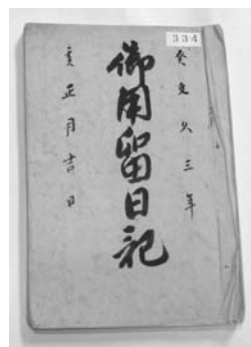 334
癸文久三年
御用留日記
亥正月吉日